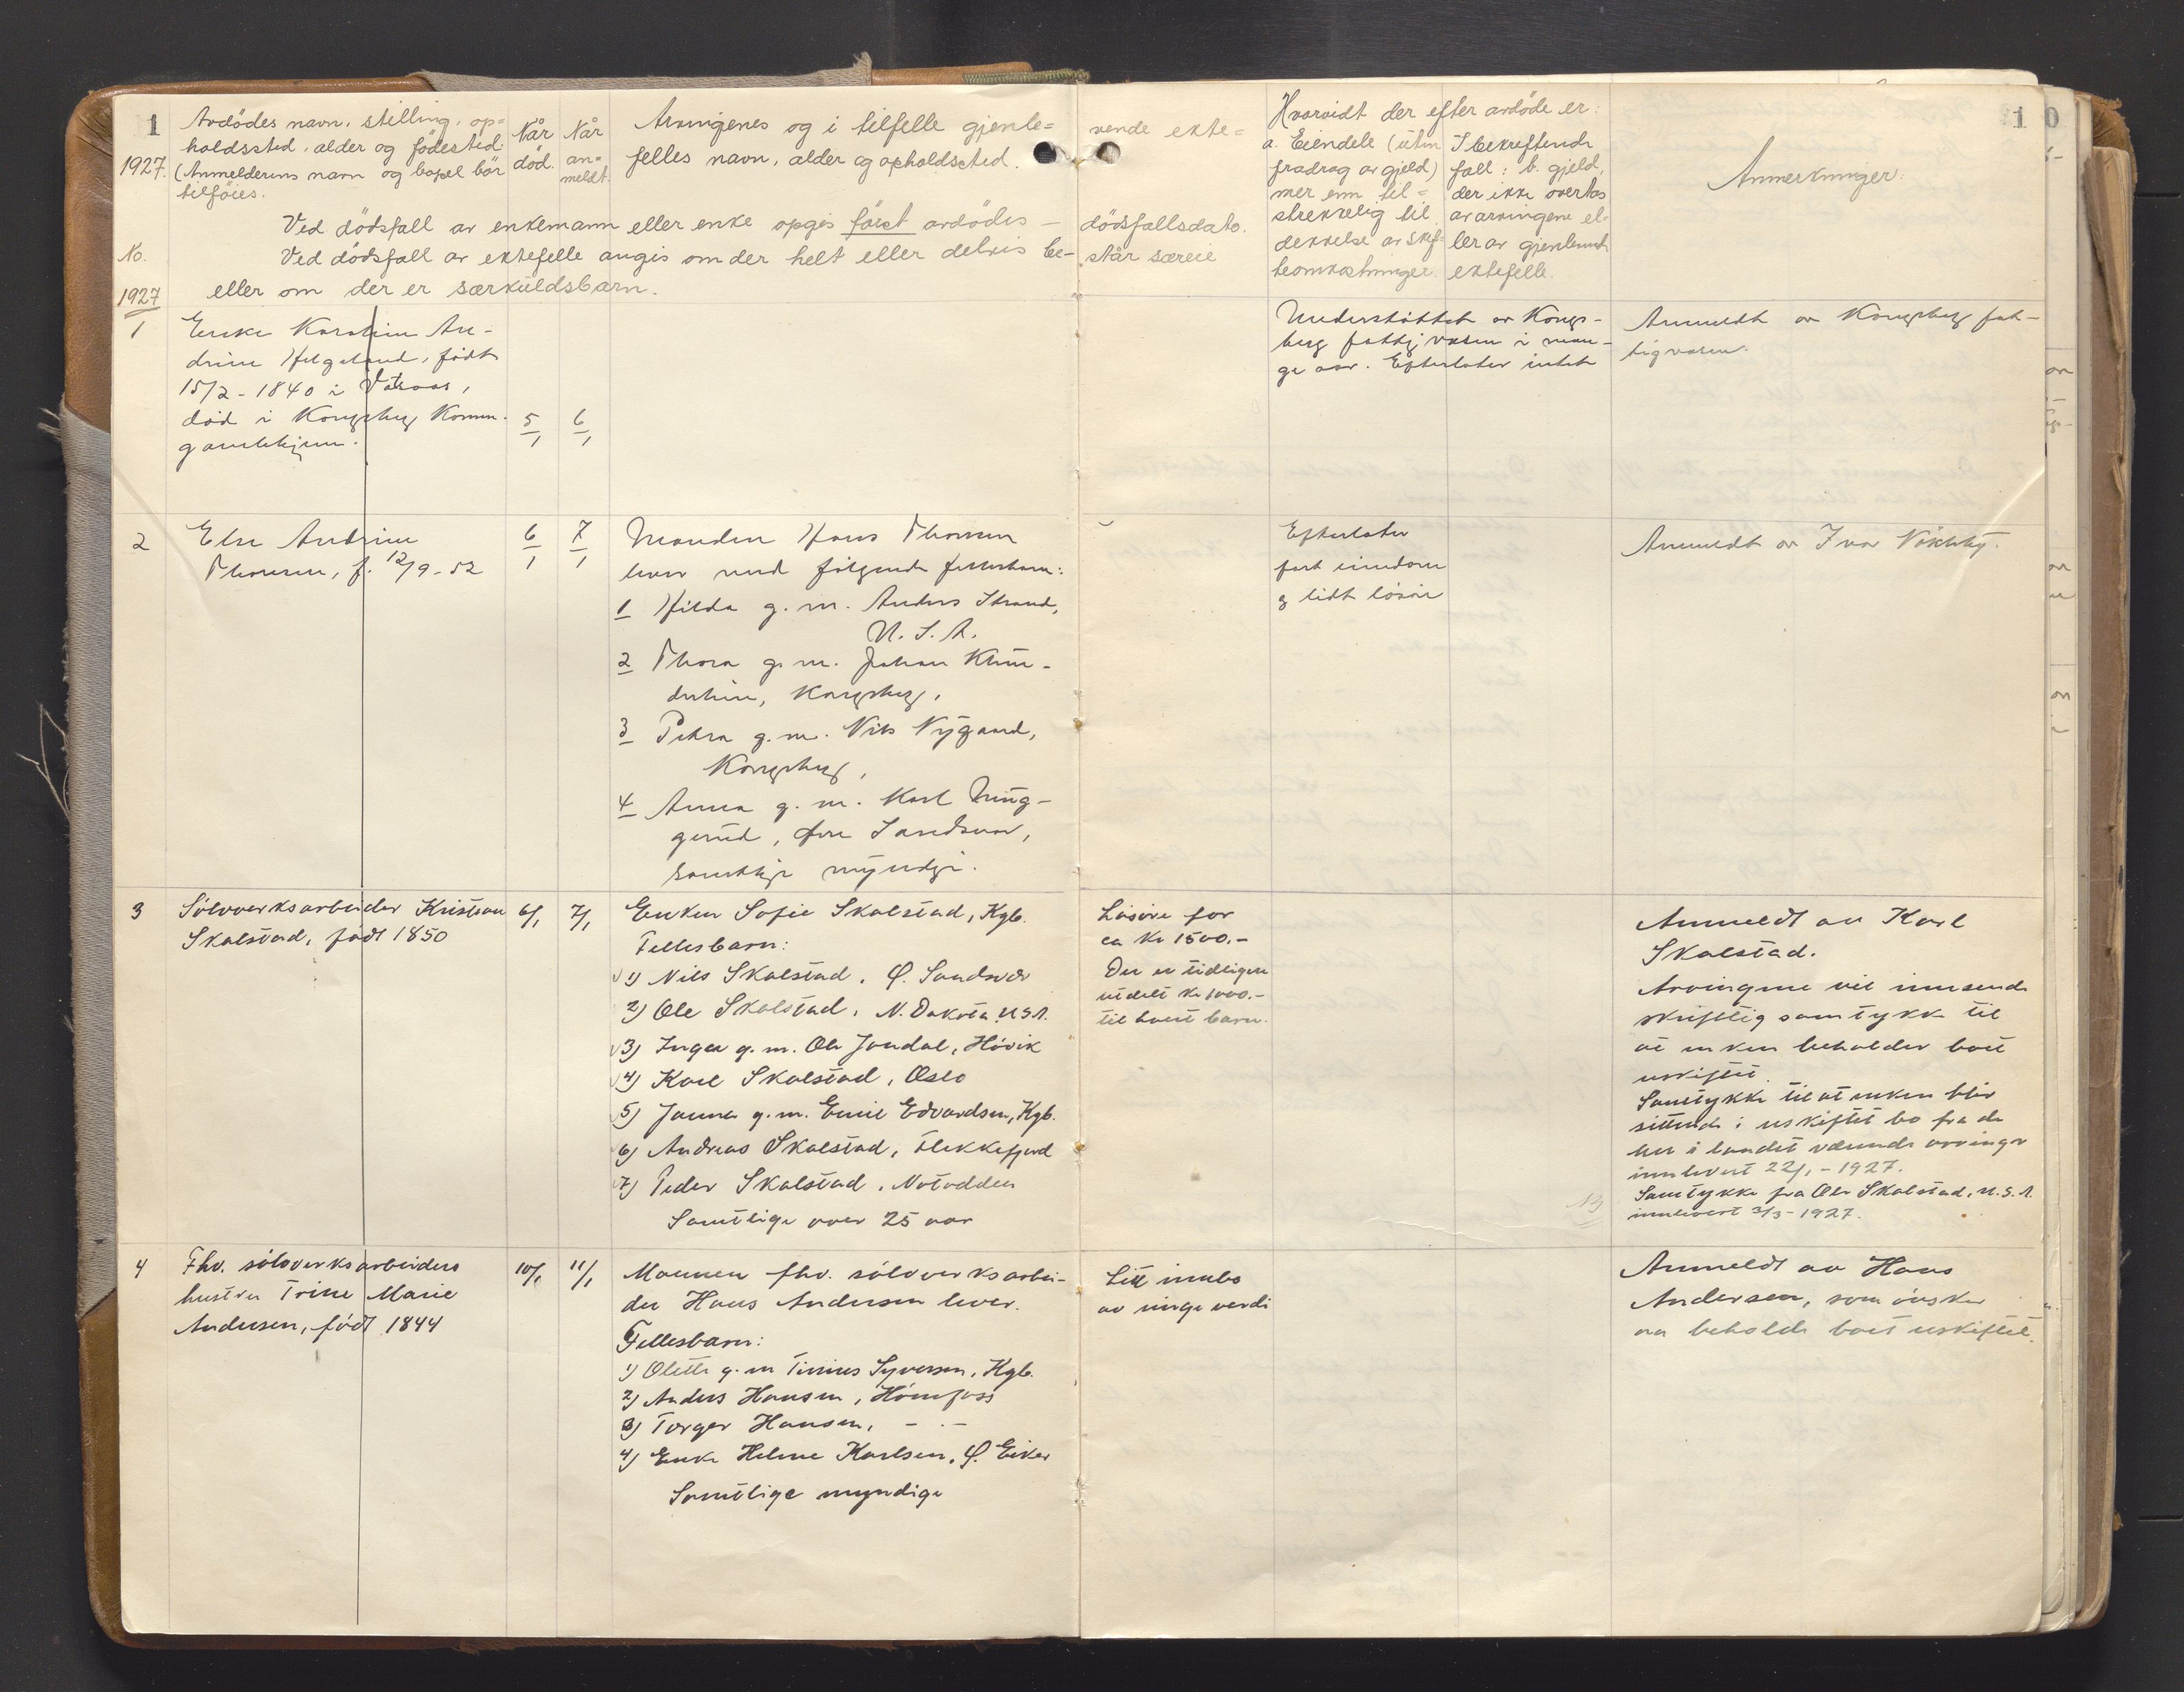 1
1927.
Avdödes navn, stilling, op=
holdssted, alder og födested.
(Anmelderens navn og bopel bör
tilföies.
Når
död.
Når
an=
meldt.
Arvingenes og i tilfelle gjenle=
felles navn, alder og opholdssted.
Ved dödsfall av enkemann eller enke opgis först avdödes –
Ved dödsfall av ektefelle angis om der helt eller delvis be-
eller om der er særkuldsbarn.
vende ekte=
dödsfallsdato.
står særeie
Hvorvidt der efter avdöde er:
a. Eiendele (uten
fradrag av gjeld)
mer enn til=
strekkelig til
dekkelse av skif=
teomkostninger.
I bekreftende
fall: b. gjeld,
der ikke overtas
av arvingene el=
ler av gjenlevende
ektefelle.
Anmerkninger.
10
No.
1927
1
Enke Karoline An-
drine Helgeland, födt
15/2 - 1840 i
död i Kongsberg Komm.
gamlehjem.
5/1
6/1
Understöttet av Kongs-
berg fattigvæsen i man-
ge aar. Efterlater intet
Anmeldt av Kongsberg fat-
tigvæsen.
2
Else Andrine
Thomsen, f. 12/9 - 52
6/1
7/1
Manden Hans Thomsen
lever med følgende fellesbarn:
1 Hilda g. m. Anders Strand,
U. S. A.
2 Thora g. m. Johan
Kongsberg,
3 Petra g. m. Nils Nygaard,
Kongsberg,
4 Anna g. m. Karl
gerud, Øvre Sandsvær,
samtlige myndige.
Efterlater
fast eiendom
og lidt lösöre
Anmeldt av Ivar
3
Sölvverksarbeider Kristian
Skalstad, födt 1850
6/1
7/1
Enken Sofie Skalstad, Kgb.
Fellesbarn:
1) Nils Skalstad, Ø. Sandsvær
2) Ole Skalstad, N. Dakota U.S.A.
3) Inga g. m. Ole Jondal, Hövik
4) Karl Skalstad, Oslo
5) Janna g. m. Emil Edvardsen, Kgb.
6) Andreas Skalstad, Flekkefjord
7) Peder Skalstad, Notodden
Samtlige over 25 aar
Lösöre for
ca kr 1500.-
Der er tidligere
utdelt kr 1000.-
til hvert barn.
Anmeldt av Karl
Skalstad.
Arvingene vil innsende
skriftlig samtykke til
at enken beholder boet
uskiftet.
Samtykke til at enken blir
sittende i uskiftet bo fra de
her i landet værende arvinger
innlevert 22/1 - 1927.
Samtykke fra Ole Skalstad, U.S.A.
innlevert 3/3 - 1927.
4
Fhv. sölvverksarbeiders
hustru Trine Marie
Andersen, födt 1844
10/1
11/1
Mannen fhv. sölvverksarbei-
der Hans Andersen lever.
Fellesbarn:
1) Olette g. m Tinius Syversen, Kgb.
2) Anders Hansen, Hönefoss
3) Torger Hansen, – " –
4) Enke Helene Karlsen, Ø. Eiker
Samtlige myndige
Litt innbo
av ringe verdi
Anmeldt av Hans
Andersen, som önsker
aa beholde boet uskiftet.